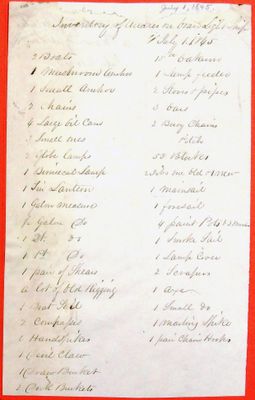 July 1, 1865.
Inventory of Articles on Board Light Ship
July 1. 1865
2 Boats
1 Mushroom Anchor
1 Small Anchor
2 Chains
4 Large Oil Cans
3 Small ones
2 Globe Lamps
1 Binnacal Lamp
1 Tin Lantern
1 Galon measure
½ Galon Do
1 Qt. do
1 Pt Do
1 pair of Shears
a lot of Old Rigging
1 Boat Sail
2 Compases
1 Handspikes
1 Devil Claw
1 Draw Bucket
2 Deck Buckets
15 Oakum
1 Lamp feeder
2 Stoves & pipes
3 Oars
2 Buoy Chains
53 Blocks
2 Jibs one old & 1 New
1 Mainsail
1 foresail
4 paint Pots
1 Smoke Sail
1 Lamp Cover
2 Scrapers
1 axe
1 Small do
1 Marling Spike
1 pair Chain Hooks